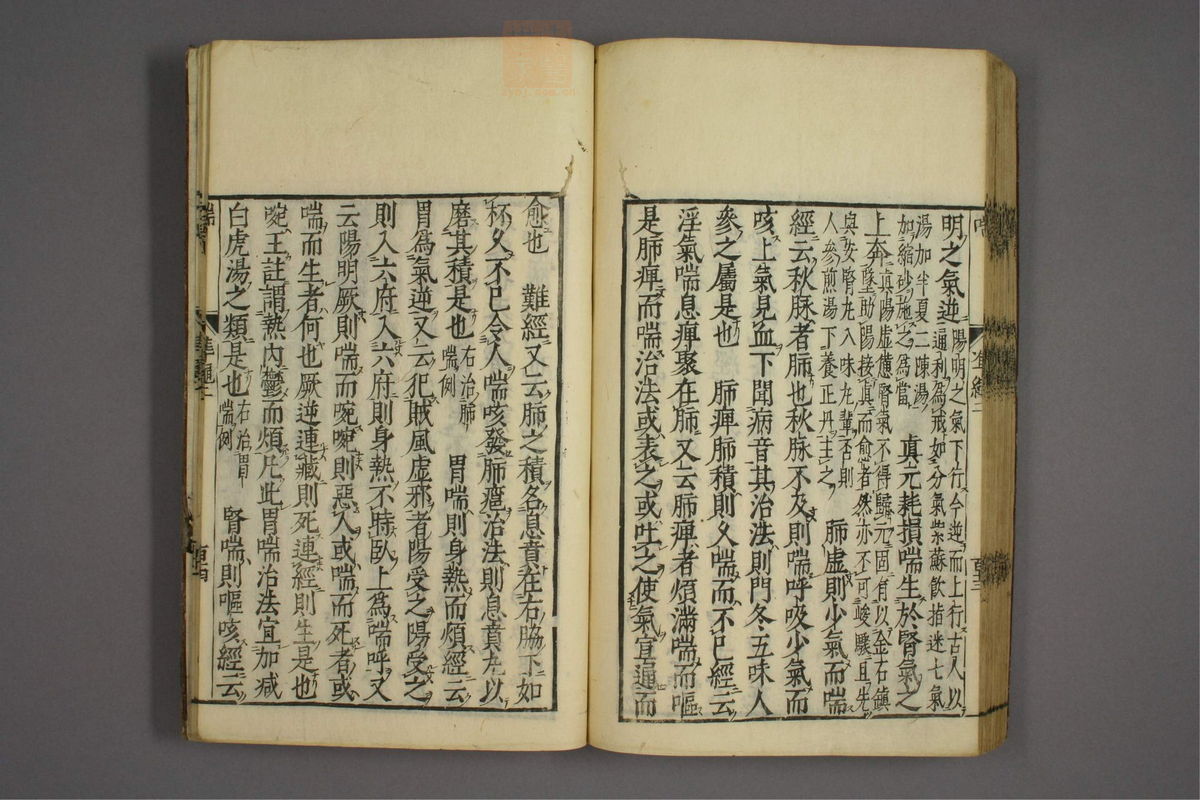 明之氣逆陽明之氣下行今逆而上行古人以
湯加半夏二陳湯遍利爲戒如分氣紫蘇飮指迷七氣
如縮砂施之爲當眞元耗損喘生於腎氣之
上奔眞陽虛憊腎氣不得歸元固有以金石鎭
墜助陽接眞而愈者然亦不可峻驟且先
與安腎丸八味丸輩否則
人參煎湯下養正丹主之肺虛則少氣而喘
經云秋脉者肺也秋脉不及則喘呼吸少氣而
咳上氣見血下聞病音其治法則門冬五味人
參之屬是也 肺痺肺積則久喘而不已經云
淫氣喘息痺聚在肺又云肺痺者煩滿喘而嘔
是肺痺而喘治法或表之或吐之使氣宣通而
愈也 難經又云肺之積名息賁在右脇下如
杯久不已令人喘咳發肺癰治法則息賁丸以
磨其積是也右治肺喘例 胃喘則身熱而煩經云
胃爲氣逆又云犯賊風虛邪者陽受之陽受之
則入六府入六府則身熱不時臥上爲喘呼又
云陽明厥則喘而啘啘則惡人或喘而死者或
喘而生者何也厥逆連藏則死連經則生是也
啘王註謂熱內鬱而煩凡此胃喘治法宜加减
白虎湯之類是也右治胃喘例 腎喘則嘔咳經云